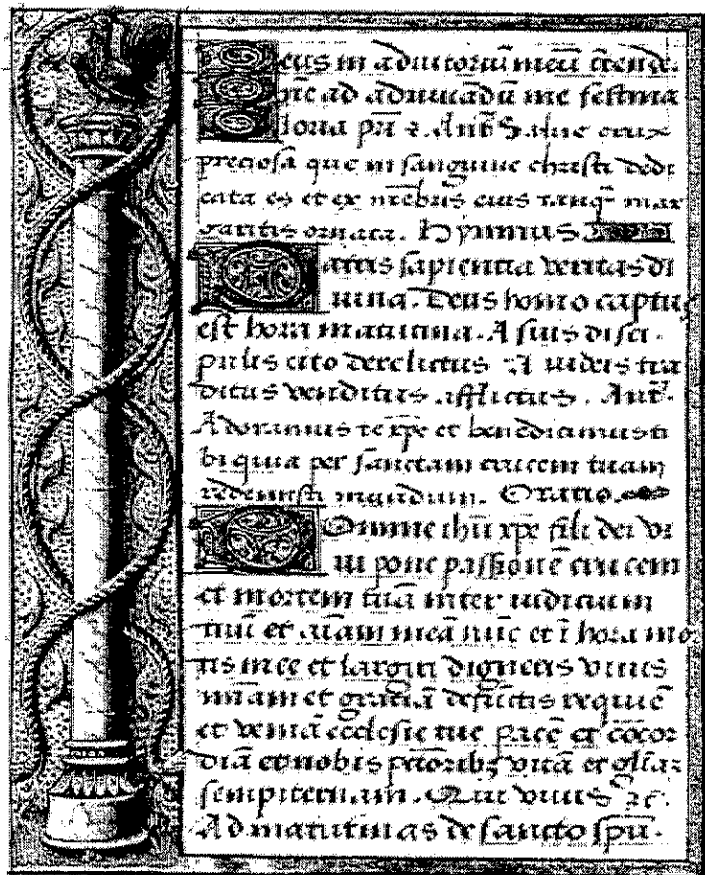 Deus in adiutoriū meū intende.
Dñe ad adiuuādū me festina
Gloria pr̄i ⁊. Añt̄ Salue crux
preciosa que in sanguine christi dedi
cata es et ex mēbris eius tanq̄ mar
garitis ornata. Hymnus
Patris sapientia veritas di
uina. Deus homo captus
est hora matutina. A suis disci
pulis cito derelictus A iudeis tra
ditus venditus afflictus. Añt̄.
Adoramus te xp̄e et benedicimus ti
bi quia per sanctam crucem tuam
redemisti mundum. Oratio.
Domine ihū xp̄e fili dei vi
ui pone passionē crucem
et mortem tuā inter iudicium
tuū et aīam meā nūc et ī hora mor
tis mee et largiri digneris viuis
mīam et gratiā defūctis requiē
et veniā ecclesie tue pacē et cōcor
diā et nobis pctōribꝫ vitā et glīar
sempiternam. Qui viuis ⁊c.
Ad matutinas de sancto spū.